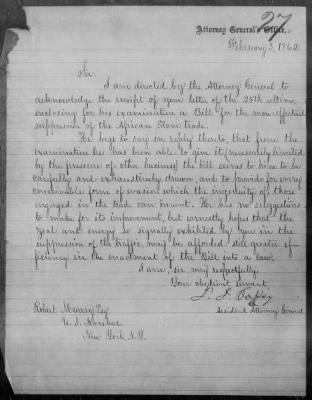 27
Attorney General's Office,
February 3, 1862
Sir
I am directed by the Attorney General to
acknowledge the receipt of your letter of the 28th ultimo,
enclosing for his examination a Bill for the more effectual
suppression of the African Slave trade.
He begs to say in reply thereto, that from the
examination he has been able to give it (necessarily limited
by the pressure of other business) the bill seems to him to be
carefully and exhaustively drawn and to provide for every
conceivable form of evasion which the ingenuity of those
engaged in the trade can invent. He has no suggestions
to make for its improvement, but earnestly hopes that the
zeal and energy so signally exhibited by you in the
suppression of the traffic may be afforded still greater ef-
ficiency in the enactment of the Bill into a law.
I am, sir, very respectfully,
Your obedient servant
T. J. Coffey
Assistant Attorney General
Robert Murray Esq
U. S. Marshal
New York, N.Y.